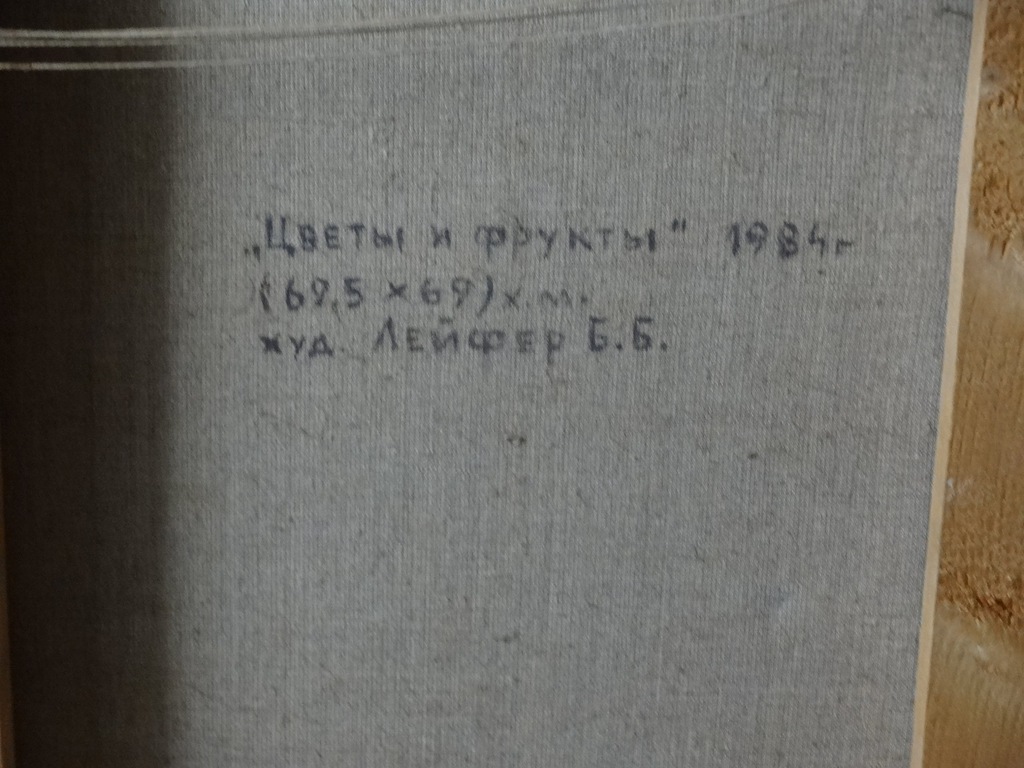 „Цветы и фрукты" 1984г
(69,5 × 69) х.м.
худ. Лейфер Б.Б.